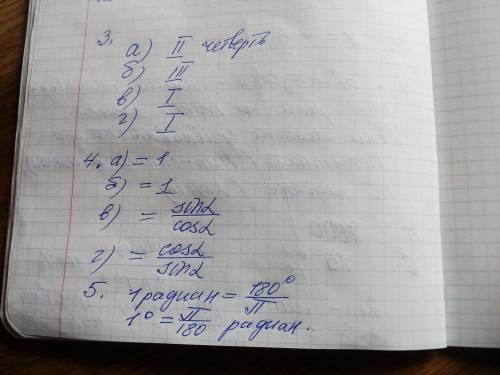 3.
а) II четверть
б) III
в) I
г) I
4. а) = 1
б) = 1
в) = sinα/cosα
г) = cosα/sinα
5. 1 радиан = 180°/П
1° = П/180 радиан.